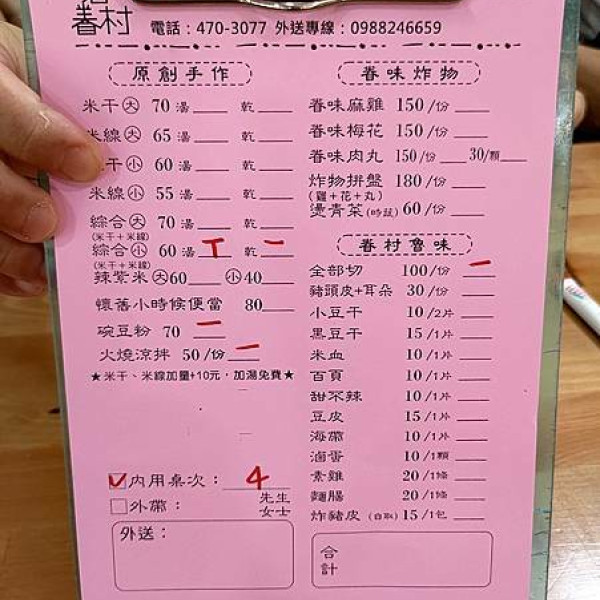 眷村 電話：470-3077 外送專線：0988246659
原創手作
米干大 70 湯 乾
米線大 65 湯 乾
干小 60 湯 乾
米線小 55 湯 乾
綜合大 70 湯 乾
(米干+米線)
綜合小 60 湯 T 乾 一
(米干+米線)
辣紫米大60 小40
懷舊小時候便當 80
碗豆粉 70 一
火燒涼拌 50/份 一
★米干、米線加量+10元，加湯免費★
✓內用桌次： 4
外帶： 先生
女士
外送：
眷味炸物
眷味麻雞 150/份
眷味梅花 150/份
眷味肉丸 150/份 30/顆
炸物拼盤 180/份
(雞+花+丸)
燙青菜(時蔬) 60/份
眷村魯味
全部切 100/份 一
豬頭皮+耳朵 30/份
小豆干 10/2片
黑豆干 15/1片
米血 10/1片
百頁 10/1片
甜不辣 10/1片
豆皮 15/1片
海帶 10/1片
滷蛋 10/1顆
素雞 20/1條
麵腸 20/1條
炸豬皮(自取) 15/1包
合計